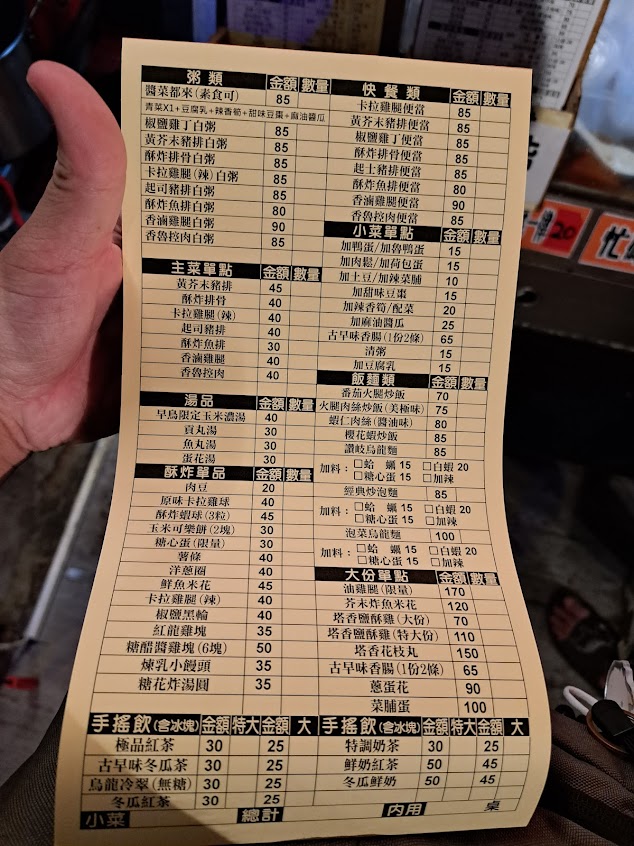 粥類 金額 數量
醬菜都來(素食可) 85
青菜X1+豆腐乳+辣香筍+甜味豆棗+麻油醬瓜
椒鹽雞丁白粥 85
黃芥末豬排白粥 85
酥炸排骨白粥 85
卡拉雞腿(辣)白粥 85
起司豬排白粥 85
酥炸魚排白粥 80
香滷雞腿白粥 90
香魯控肉白粥 85
主菜單點 金額 數量
黃芥末豬排 45
酥炸排骨 40
卡拉雞腿(辣) 40
起司豬排 40
酥炸魚排 30
香滷雞腿 40
香魯控肉 40
湯品 金額 數量
早鳥限定玉米濃湯 40
貢丸湯 30
魚丸湯 30
蛋花湯 30
酥炸單品 金額 數量
肉豆 20
原味卡拉雞球 40
酥炸蝦球(3粒) 45
玉米可樂餅(2塊) 30
糖心蛋(限量) 30
薯條 40
洋蔥圈 40
鮮魚米花 45
卡拉雞腿(辣) 40
椒鹽黑輪 40
紅龍雞塊 35
糖醋醬雞塊(6塊) 50
煉乳小饅頭 35
糖花炸湯圓 35
快餐類 金額 數量
卡拉雞腿便當 85
黃芥末豬排便當 85
椒鹽雞丁便當 85
酥炸排骨便當 85
起士豬排便當 85
酥炸魚排便當 80
香滷雞腿便當 90
香魯控肉便當 85
小菜單點 金額 數量
加鴨蛋/加魯鴨蛋 15
加肉鬆/加荷包蛋 15
加土豆/加辣菜脯 10
加甜味豆棗 15
加辣香筍/配菜 20
加麻油醬瓜 25
古早味香腸(1份2條) 65
清粥 15
加豆腐乳 15
飯麵類 金額 數量
番茄火腿炒飯 70
火腿肉絲炒飯(美極味) 75
蝦仁肉絲(醬油味) 80
櫻花蝦炒飯 85
讚岐烏龍麵 85
加料：□蛤 蠣 15 □白蝦 20
□糖心蛋 15 □加辣
經典炒泡麵 85
加料：□蛤 蠣 15 □白蝦 20
□糖心蛋 15 □加辣
泡菜烏龍麵 100
加料：□蛤 蠣 15 □白蝦 20
□糖心蛋 15 □加辣
大份單點 金額 數量
油雞腿(限量) 170
芥末炸魚米花 120
塔香鹽酥雞(大份) 70
塔香鹽酥雞(特大份) 110
塔香花枝丸 150
古早味香腸(1份2條) 65
蔥蛋花 90
菜脯蛋 100
手搖飲(含冰塊) 金額 特大 金額 大
極品紅茶 30 25
古早味冬瓜茶 30 25
烏龍冷翠(無糖) 30 25
冬瓜紅茶 30 25
手搖飲(含冰塊) 金額 特大 金額 大
特調奶茶 30 25
鮮奶紅茶 50 45
冬瓜鮮奶 50 45
小菜 總計 內用 桌
20
忙